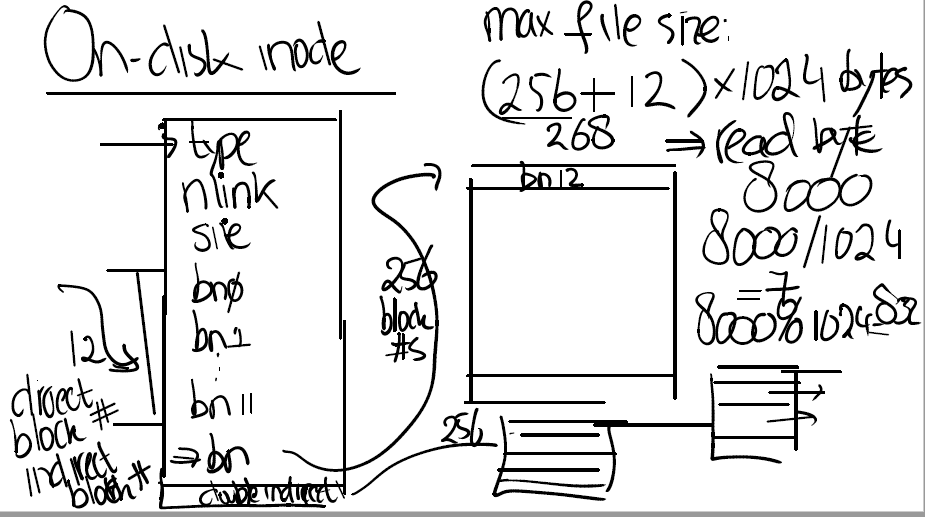 On-disk inode
type
nlink
size
bn0
bn1
⋮
bn11
⇒ bn
double indirect
12
direct
block #
indirect
block #
256
block
#s
bn12
256
max file size:
(256+12)×1024 bytes
268
⇒ read byte
8000
8000/1024
=7
8000%1024=832